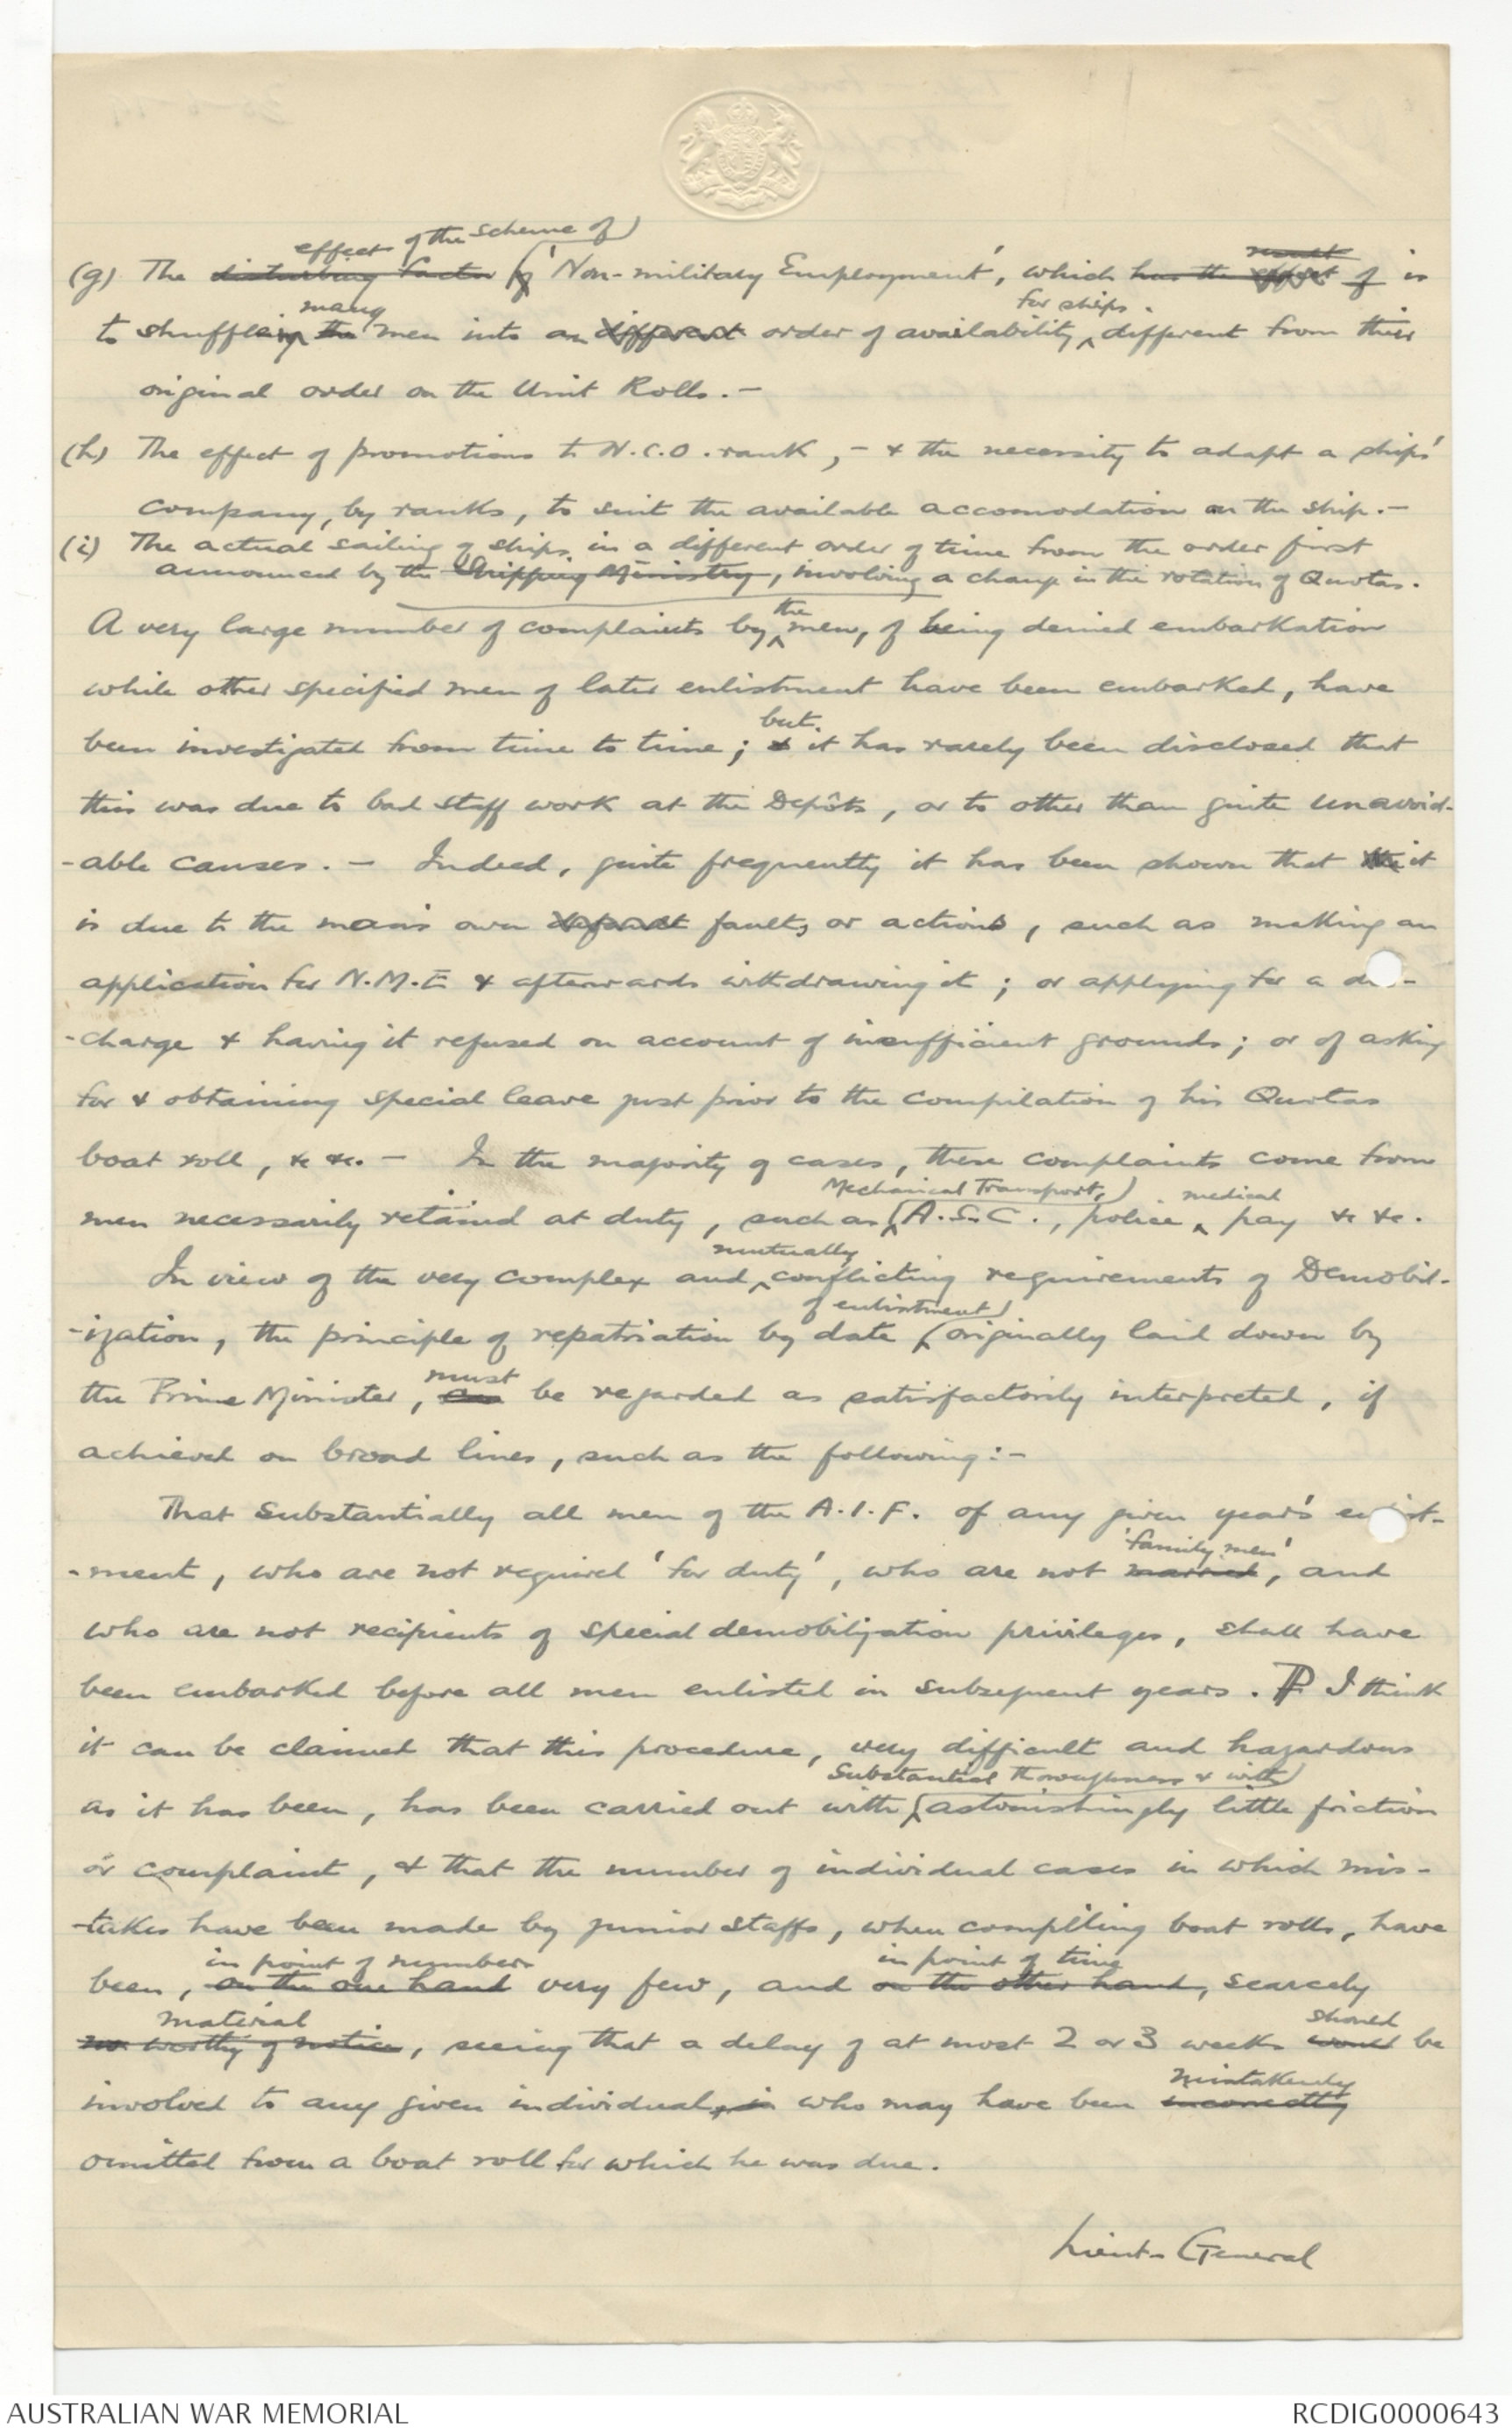 effect of the scheme of
(g) The disturbing factor of 'Non-military Employment', which has the effect result of is
many for ships.
to shuffleing the men into an different order of availability, different from their
original order on the Unit Rolls. -
(h) The effect of promotions to N.C.O. rank, - & the necessity to adapt a ships'
company, by ranks, to suit the available accomodation on the ship. -
(i) The actual sailing of ships in a different order of time from the order first
announced by the Shipping Ministry, involving a change in the rotation of Quotas.
the
A very large number of complaints by men, of being denied embarkation
while other specified men of later enlistment have been embarked, have
but
been investigated from time to time; & it has rarely been disclosed that
this was due to bad staff work at the Depôts, or to other than quite unavoid-
-able causes. - Indeed, quite frequently it has been shown that it
is due to the man's own default fault, or actions, such as making an
application for N.M.E & afterwards withdrawing it; or applying for a dis-
-charge & having it refused on account of insufficient grounds; or of asking
for & obtaining special leave just prior to the compilation of his Quotas
boat roll, &c &c. - In the majority of cases, these complaints come from
Mechanical Transport, medical
men necessarily retained at duty, such as A.S.C., police, pay &c &c.
mutually
In view of the very complex and conflicting requirements of Demobil-
of enlistment
-ization, the principle of repatriation by date originally laid down by
must
the Prime Minister, can be regarded as satisfactorily interpreted, if
achieved on broad lines, such as the following:-
That substantially all men of the A.I.F. of any given year's enlist-
'family men'
-ment, who are not required 'for duty', who are not married, and
who are not recipients of special demobilization privileges, shall have
been embarked before all men enlisted in subsequent years. P I think
it can be claimed that this procedure, very difficult and hazardous
substantial thoroughness & with
as it has been, has been carried out with astonishingly little friction
or complaint, & that the number of individual cases in which mis-
-takes have been made by junior staffs, when compiling boat rolls, have
in point of numbers in point of time
been, on the one hand very few, and on the other hand, scarcely
material should
no worthy of notice, seeing that a delay of at most 2 or 3 weeks would be
mistakenly
involved to any given individual, in who may have been incorrectly
omitted from a boat roll for which he was due.
Lieut-General
AUSTRALIAN WAR MEMORIAL
RCDIG0000643